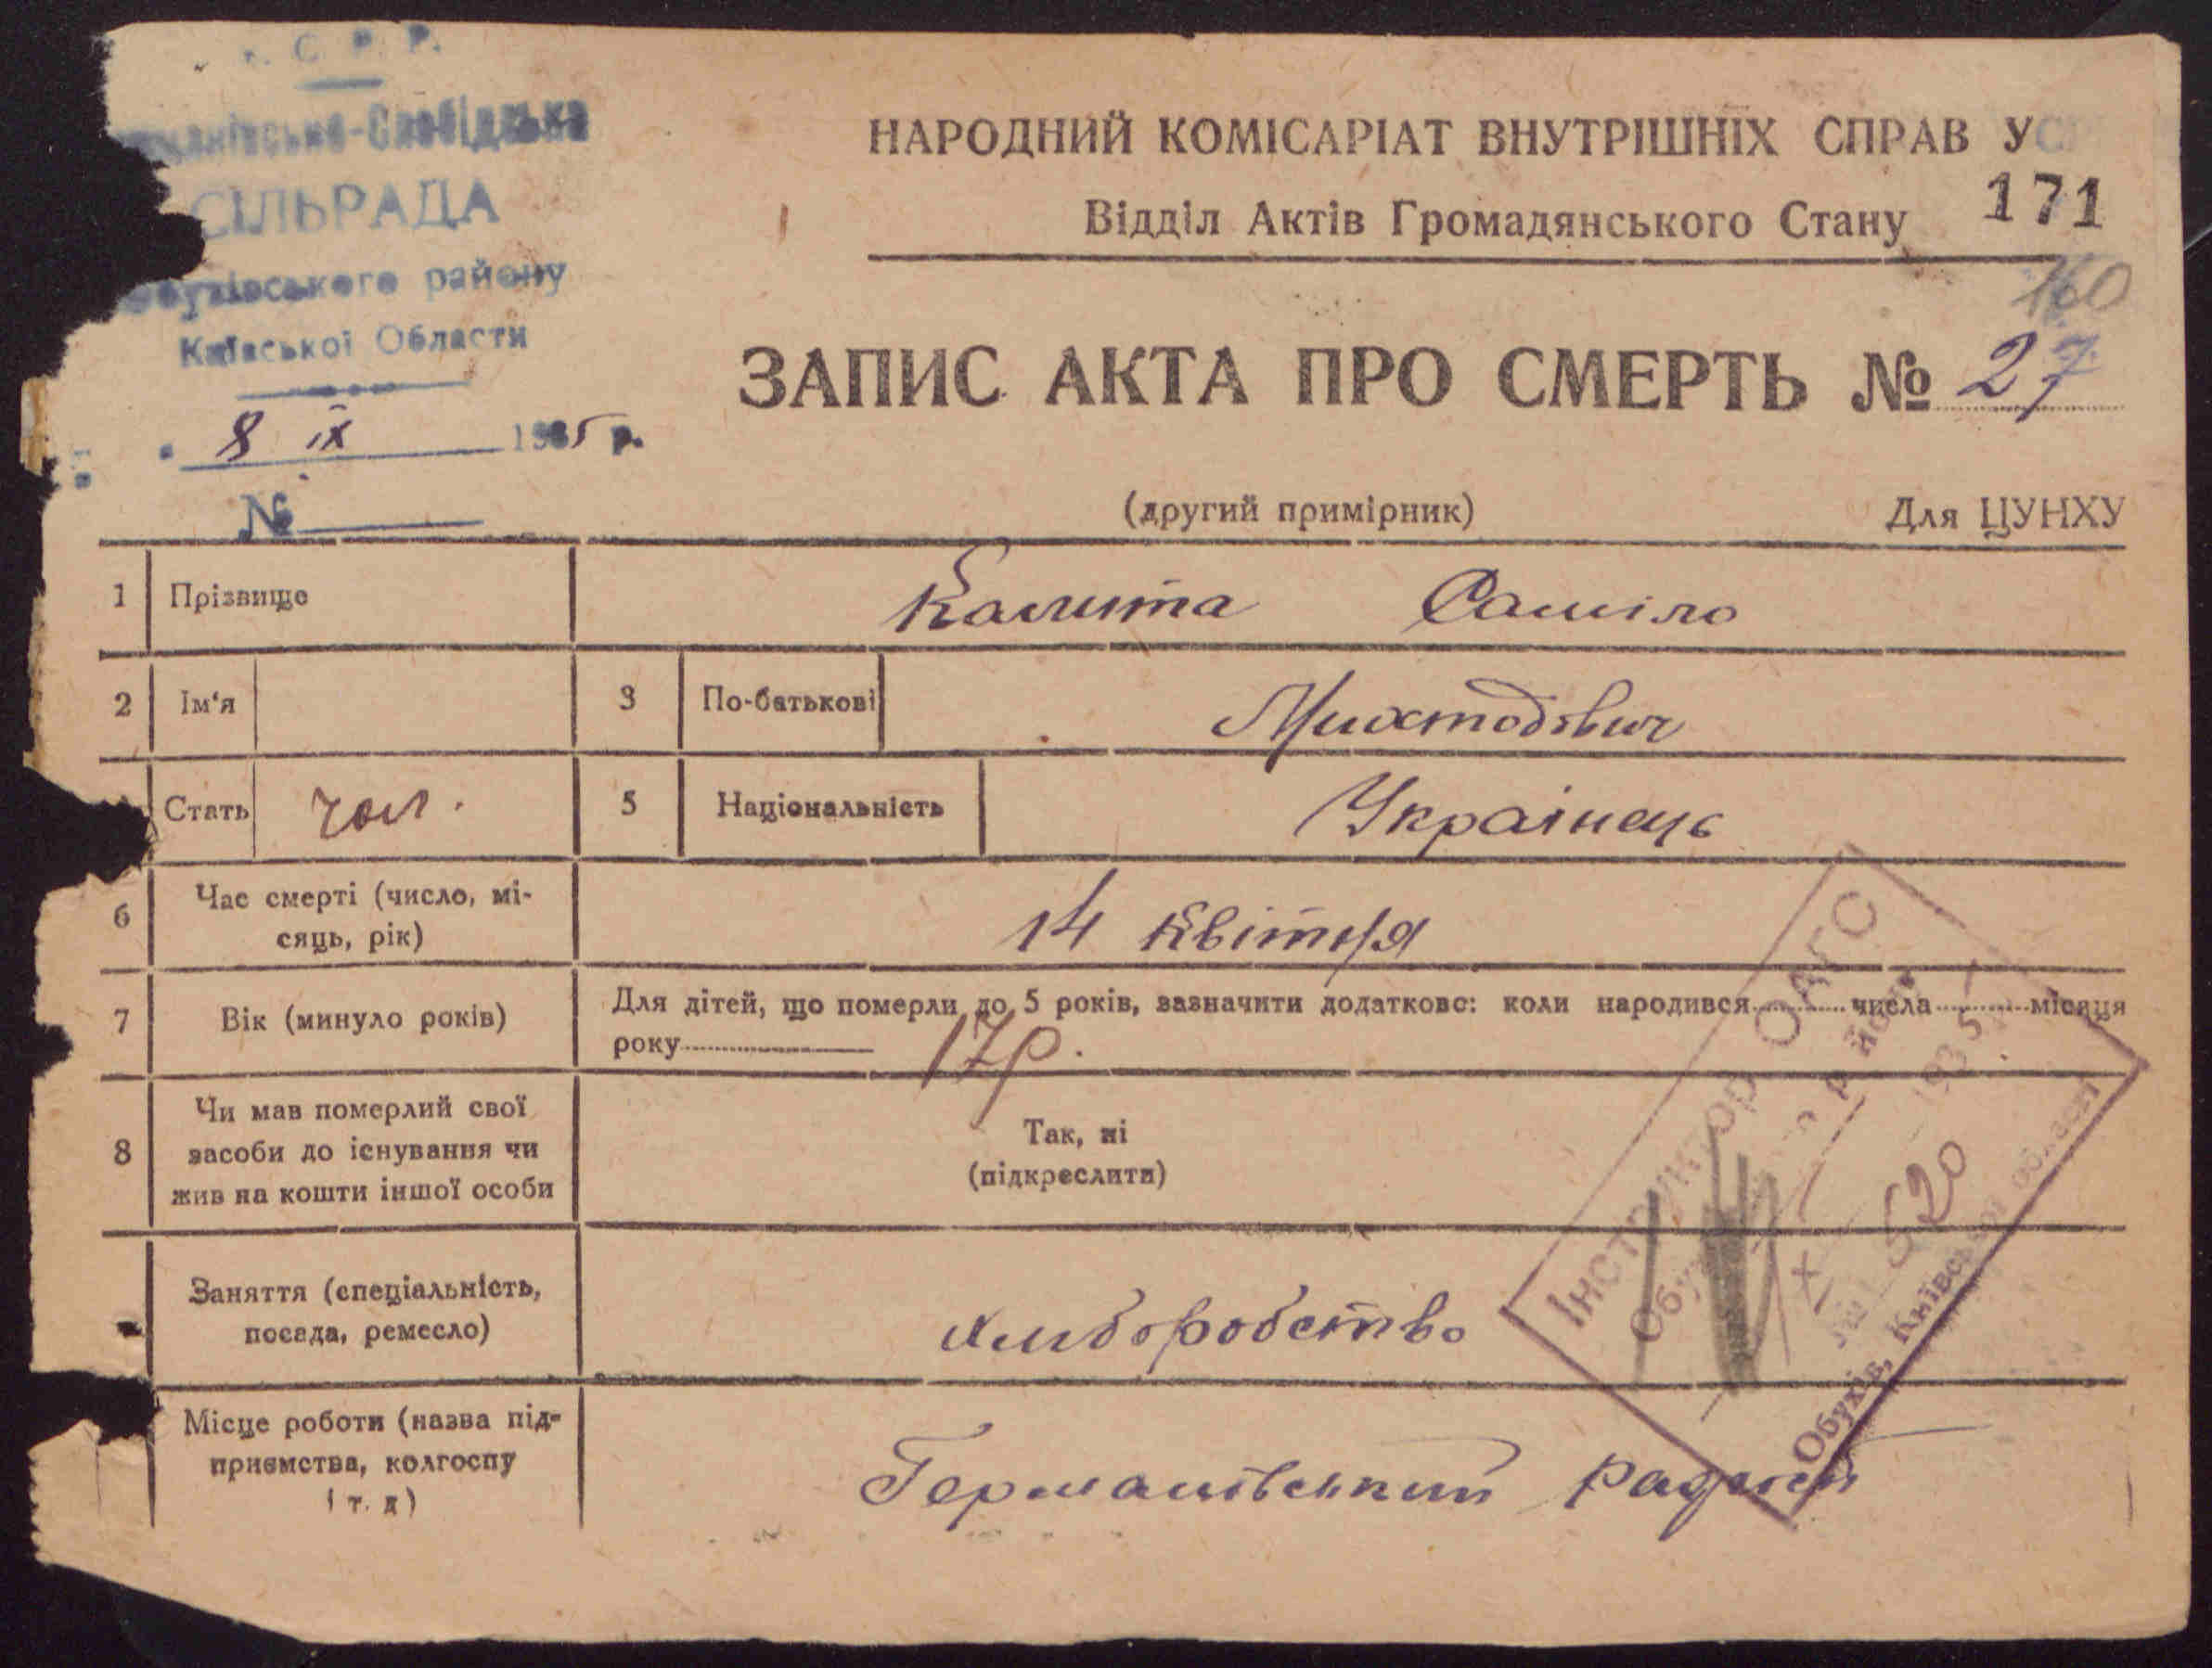 С. Р. Р.
СІЛЬРАДА
району
Київської Области
8 ІХ 1935 р.
№
НАРОДНИЙ КОМІСАРІАТ ВНУТРІШНІХ СПРАВ УС
Відділ Актів Громадянського Стану 171
160
ЗАПИС АКТА ПРО СМЕРТЬ № 27
(другий примірник) Для ЦУНХУ
1 Прізвище Калита Саміло
2 Ім'я 3 По-батькові
Стать чол. 5 Національність Українець
6 Час смерті (число, мі-
сяць, рік) 14 квітня
7 Вік (минуло років) Для дітей, що померли до 5 років, зазначити додатково: коли народився числа місяця
року 17р.
8 Чи мав померлий свої
засоби до існування чи
жив на кошти іншої особи
Так, ні
(підкреслити)
Заняття (спеціальність,
посада, ремесло) хліборобство
Місце роботи (назва під-
приємства, колгоспу
і т. д) Германівський
Інструктор ОАГС
1935
520
Обухів, Київської області